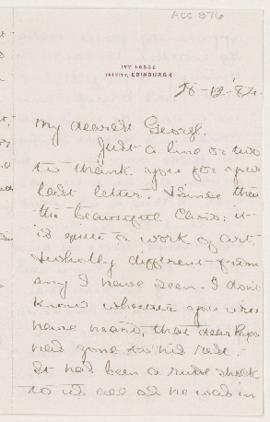 ACC 876
IVY LODGE
TRINITY, EDINBURGH
28-12-'84.
My dearest George.
Just a line or two
to thank you for your
last letter. & since then
the beautiful Card; it
is quite a work of art.
& wholly different from
any I have seen. I don't
know whether you will
have heard, that dear Papa
had gone to his rest.
It had been a rude shock
to us all as he was in